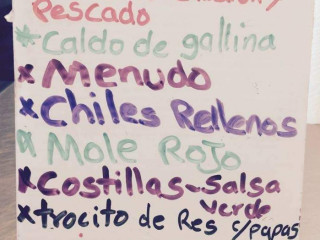 Pescado
* Caldo de gallina
x Menudo
x Chiles Rellenos
x Mole Rojo
x Costillas-salsa
verde
x trocito de Res c/papas